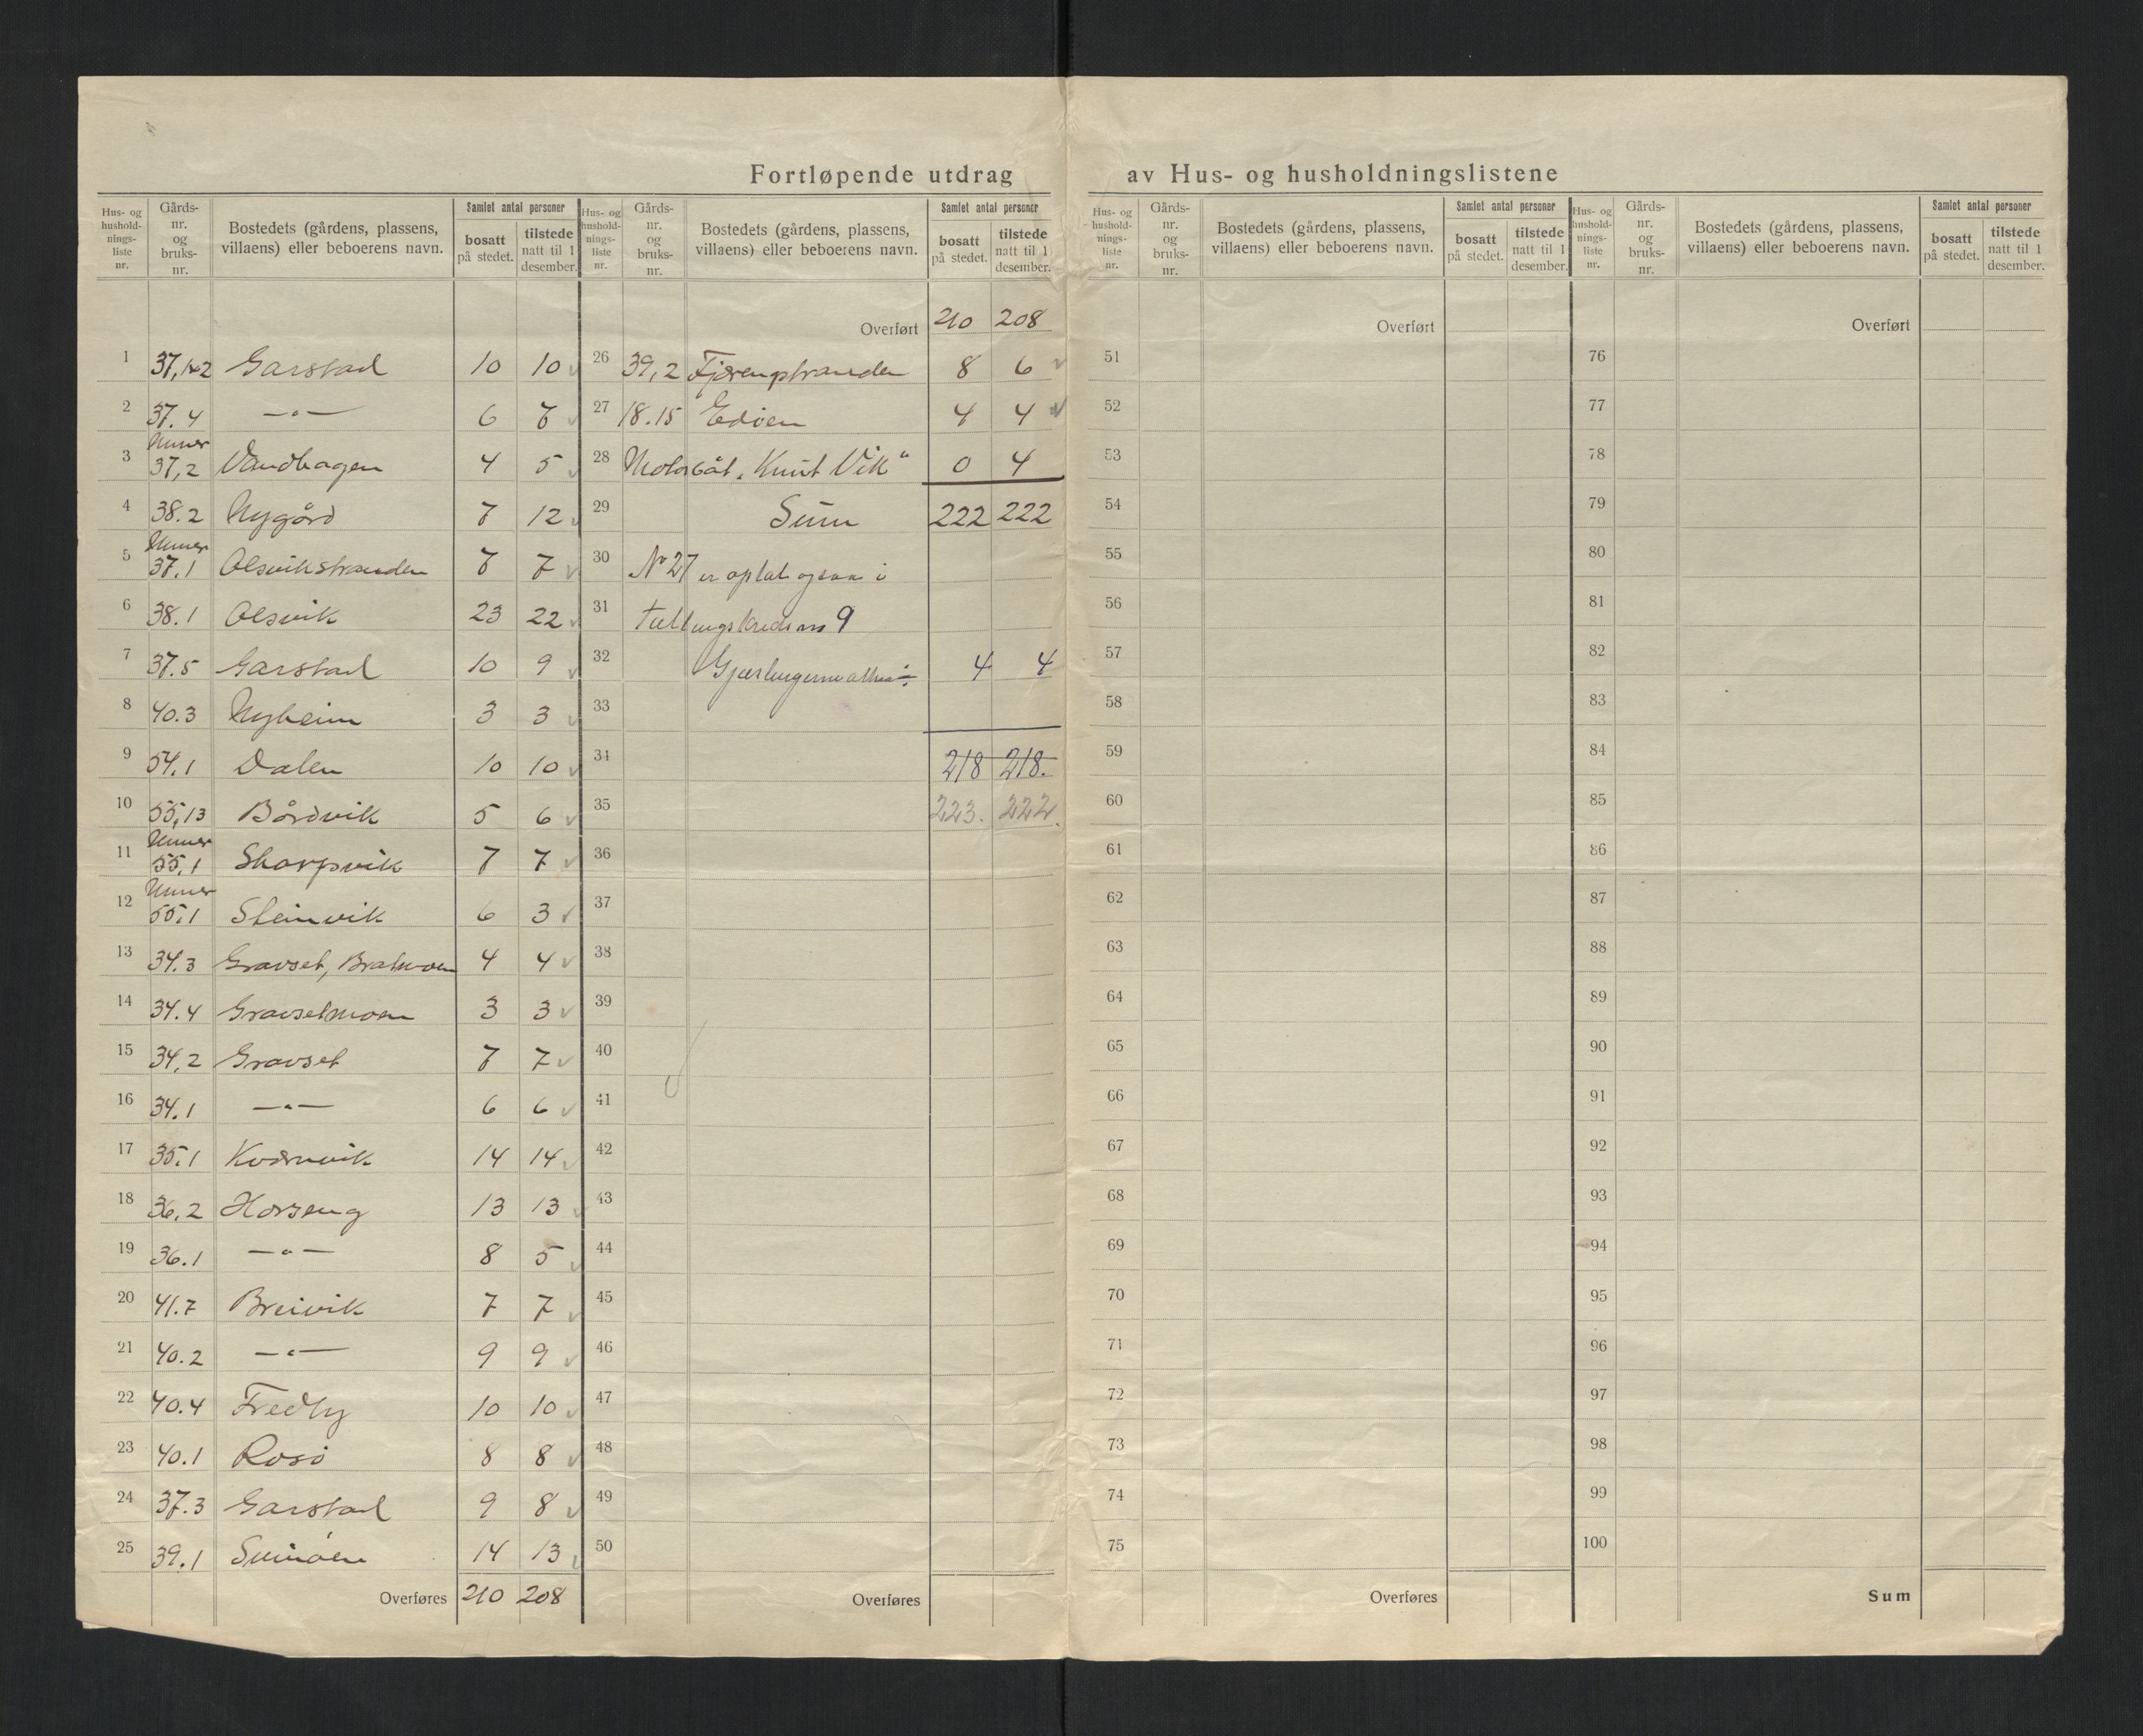 Fortløpende utdrag av Hus- og husholdningslistene
Hus- og hushold- nings- liste nr. Gårds- nr. og bruks- nr. Bostedets (gårdens, plassens, villaens) eller beboerens navn. Samlet antal personer bosatt på stedet. tilstede natt til 1 desember.
1 37,1&2 Garstad 10 10
2 37.4 —"— 6 7
3 Under 37,2 Vandhagen 4 5
4 38.2 Nygård 7 12
5 Under 37.1 Olsvikstranden 7 7
6 38.1 Olsvik 23 22
7 37.5 Garstad 10 9
8 40.3 Nyheim 3 3
9 54.1 Dalen 10 10
10 55,13 Bårdvik 5 6
11 Under 55,1 Skarpsvik 7 7
12 Under 55,1 Steinvik 6 3
13 34.3 Gravset, Bratmoen 4 4
14 34.4 Gravsetmoen 3 3
15 34,2 Gravset 7 7
16 34.1 —"— 6 6
17 35.1 Kværnvik 14 14
18 36,2 Horseng 13 13
19 36.1 —"— 8 5
20 41.7 Breivik 7 7
21 40.2 —"— 9 9
22 40.4 Fredly 10 10
23 40.1 Rosö 8 8
24 37.3 Garstad 9 8
25 39.1 14 13
Overføres 210 208
Hus- og hushold- nings- liste nr. Gårds- nr. og bruks- nr. Bostedets (gårdens, plassens, villaens) eller beboerens navn. Samlet antal personer bosatt på stedet. tilstede natt til 1 desember.
Overført 210 208
26 39,2 8 6
27 18.15 Edöen 4 4
28 Motorbåt "Knut Vik" 0 4
29 Sum 222 222
30 No 27 er optat ogsaa i
31 tællingskreds no 9
32 4 4
33
34 218 218.
35 223. 222.
36
37
38
39
40
41
42
43
44
45
46
47
48
49
50
Overføres
Hus- og hushold- nings- liste nr. Gårds- nr. og bruks- nr. Bostedets (gårdens, plassens, villaens) eller beboerens navn. Samlet antal personer bosatt på stedet. tilstede natt til 1 desember.
Overført
51
52
53
54
55
56
57
58
59
60
61
62
63
64
65
66
67
68
69
70
71
72
73
74
75
Overføres
Hus- og hushold- nings- liste nr. Gårds- nr. og bruks- nr. Bostedets (gårdens, plassens, villaens) eller beboerens navn. Samlet antal personer bosatt på stedet. tilstede natt til 1 desember.
Overført
76
77
78
79
80
81
82
83
84
85
86
87
88
89
90
91
92
93
94
95
96
97
98
99
100
Sum